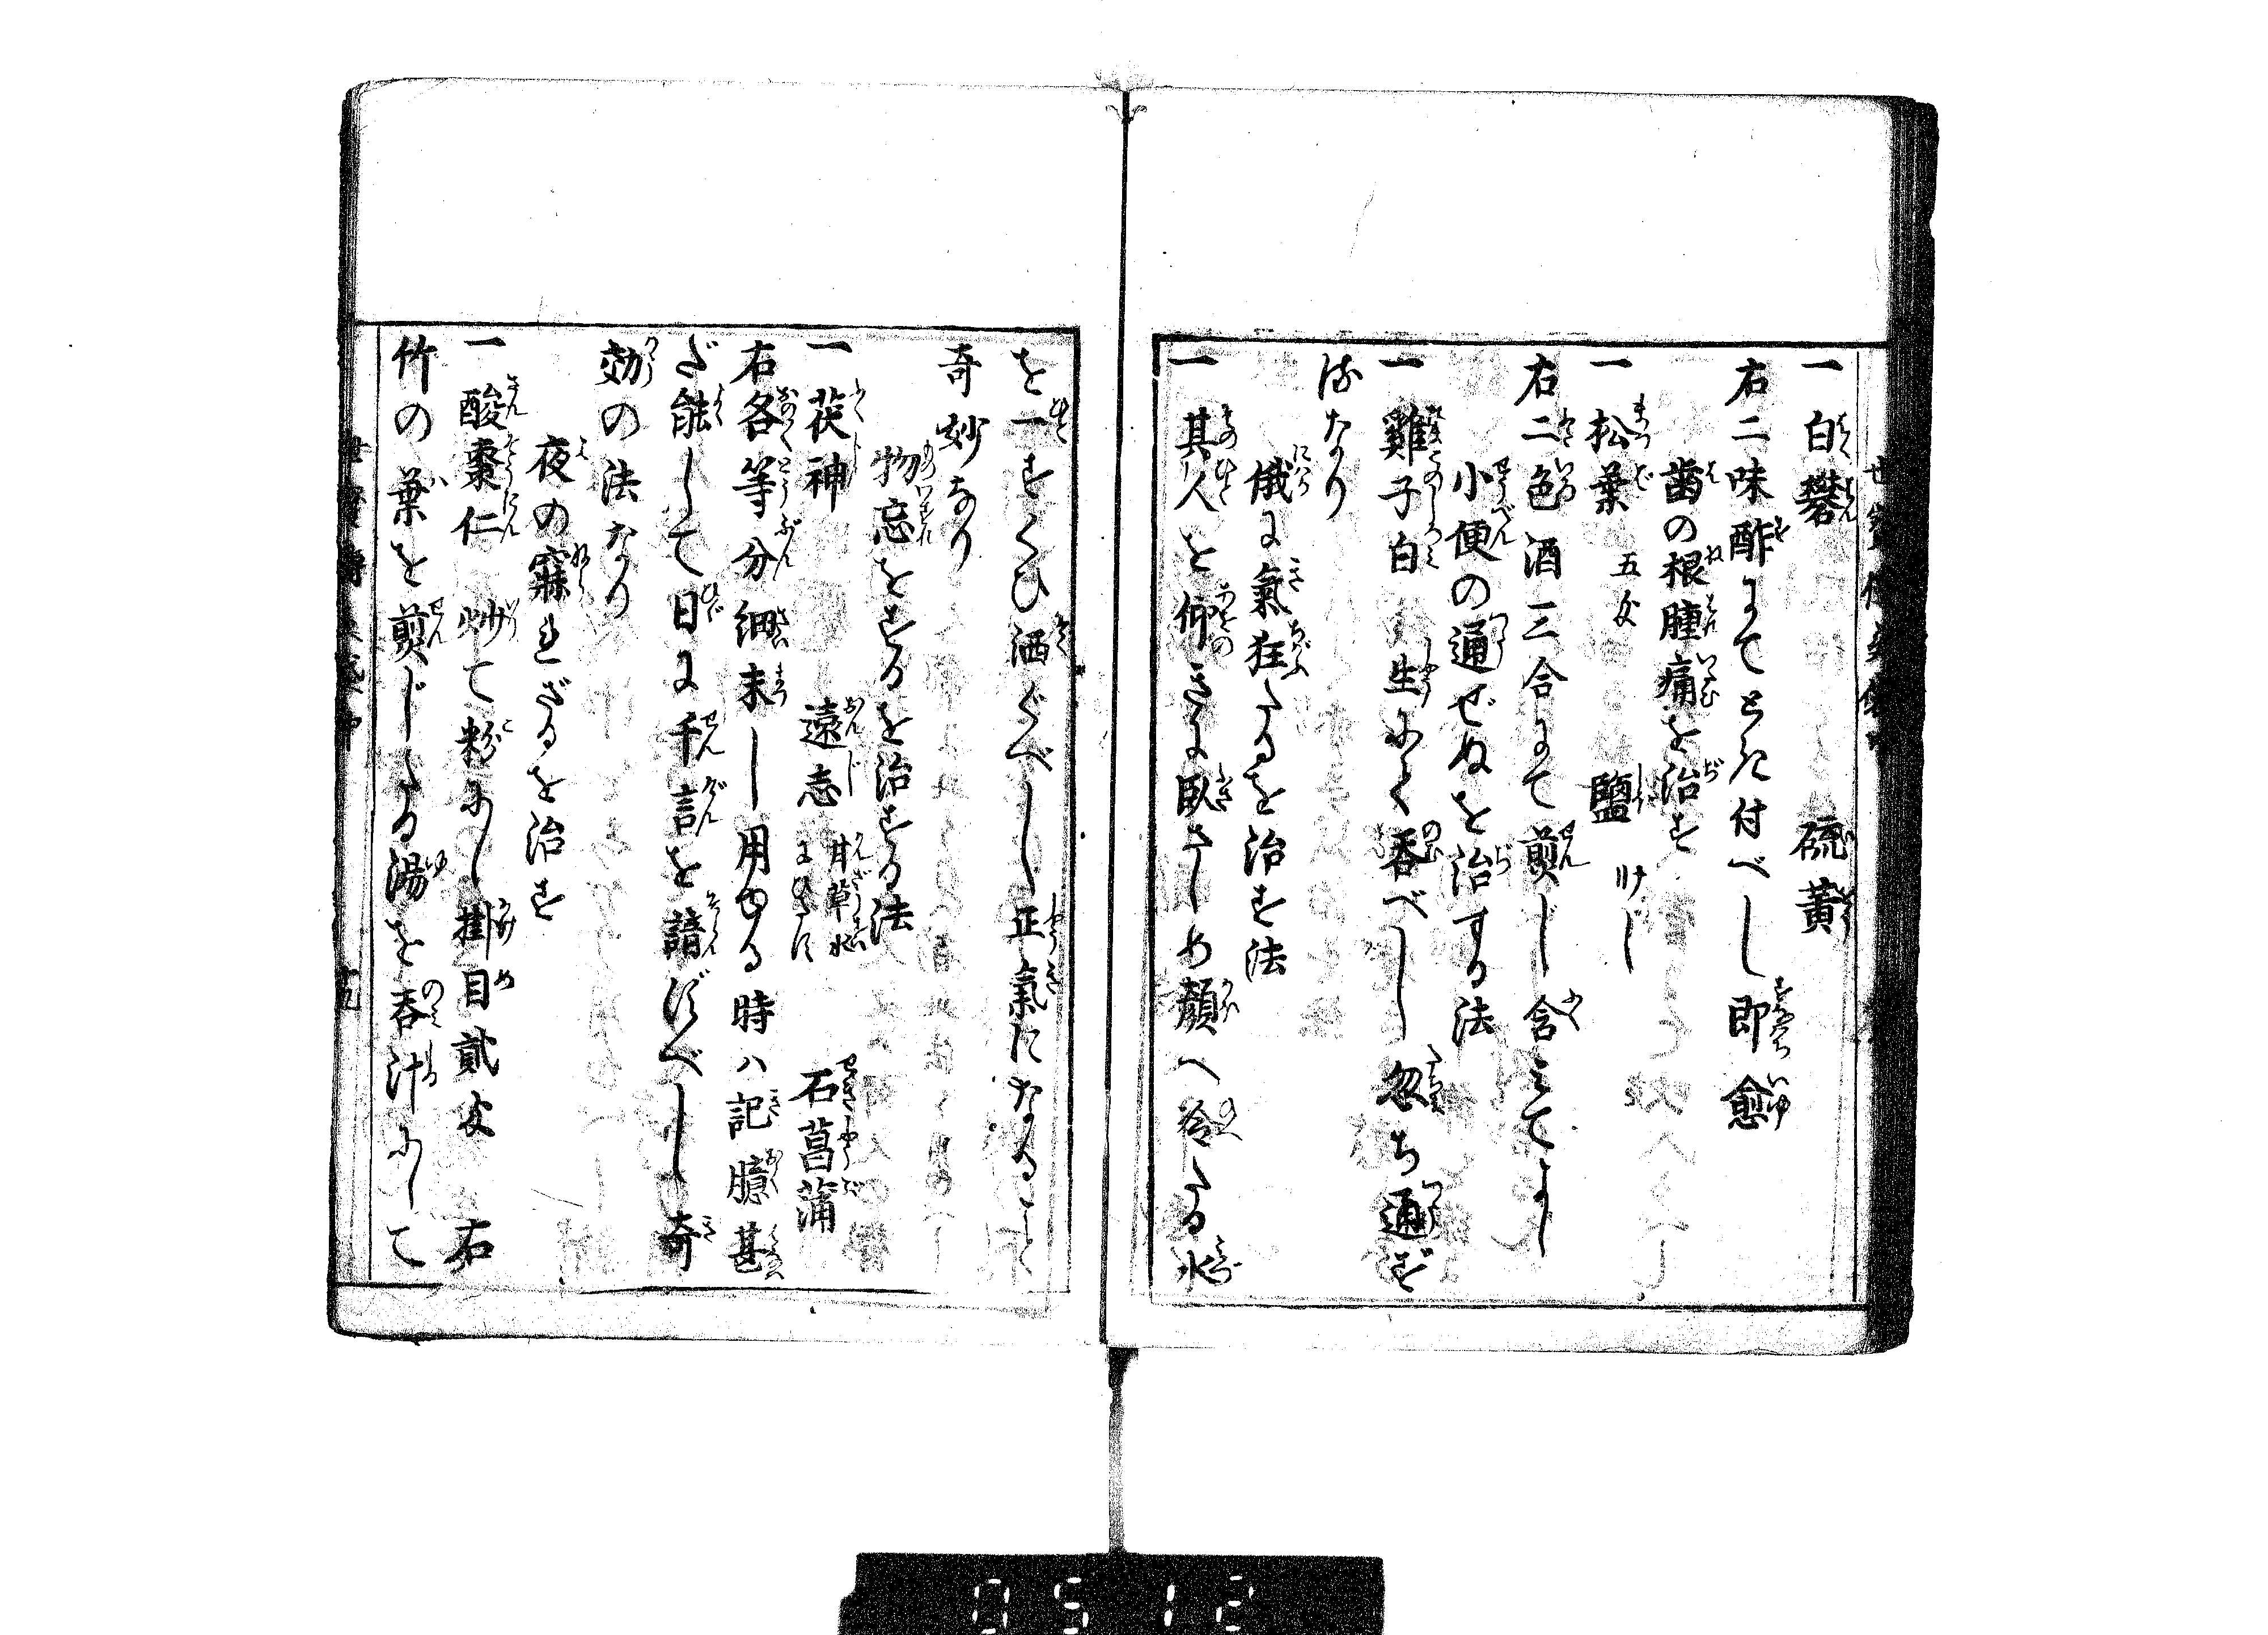 一 白礬 硫黄
右二味酢にてとき付べし即愈
歯の根腫痛を治す
一 松葉 五匁 鹽
右二色酒三合にて煎じ含みてよし
小便の通ぜぬを治する法
一 雞子白 生にて呑べし忽ち通ず
法なり
俄に氣狂たるを治す法
一 其人を仰きに臥さしめ顔へ冷たる水
を一すくひ洒ぐべし正氣になること
奇妙なり
物忘をするを治する法
一 茯神 遠志 甘草水にひたし 石菖蒲
右各等分細末し用ゆる時ハ記臆甚
だ能して日に千言を諳ずべし奇
効の法なり
夜の寐られざるを治す
一 酸棗仁 炒て粉にし掛目貳匁 右
竹の葉を煎じたる湯を呑汁にして